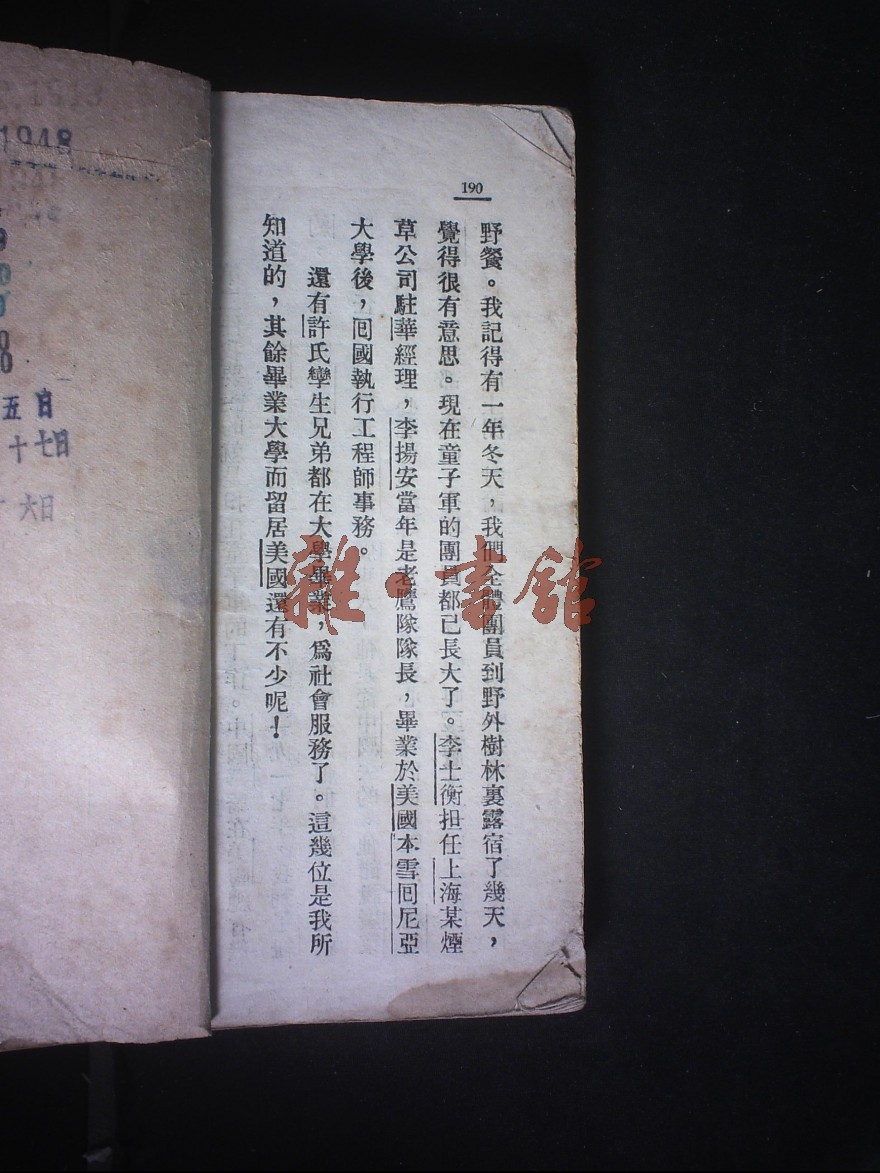 190
野餐。我記得有一年冬天，我們全體團員到野外樹林裏露宿了幾天，
覺得很有意思。現在童子軍的團員都已長大了。李士衡担任上海某煙
草公司駐華經理，李揚安當年是老鷹隊隊長，畢業於美國本雪囘尼亞
大學後，囘國執行工程師事務。
還有許氏孿生兄弟都在大學畢業，爲社會服務了。這幾位是我所
知道的，其餘畢業大學而留居美國還有不少呢！
雜·書館
1948
五日
十七日
六日